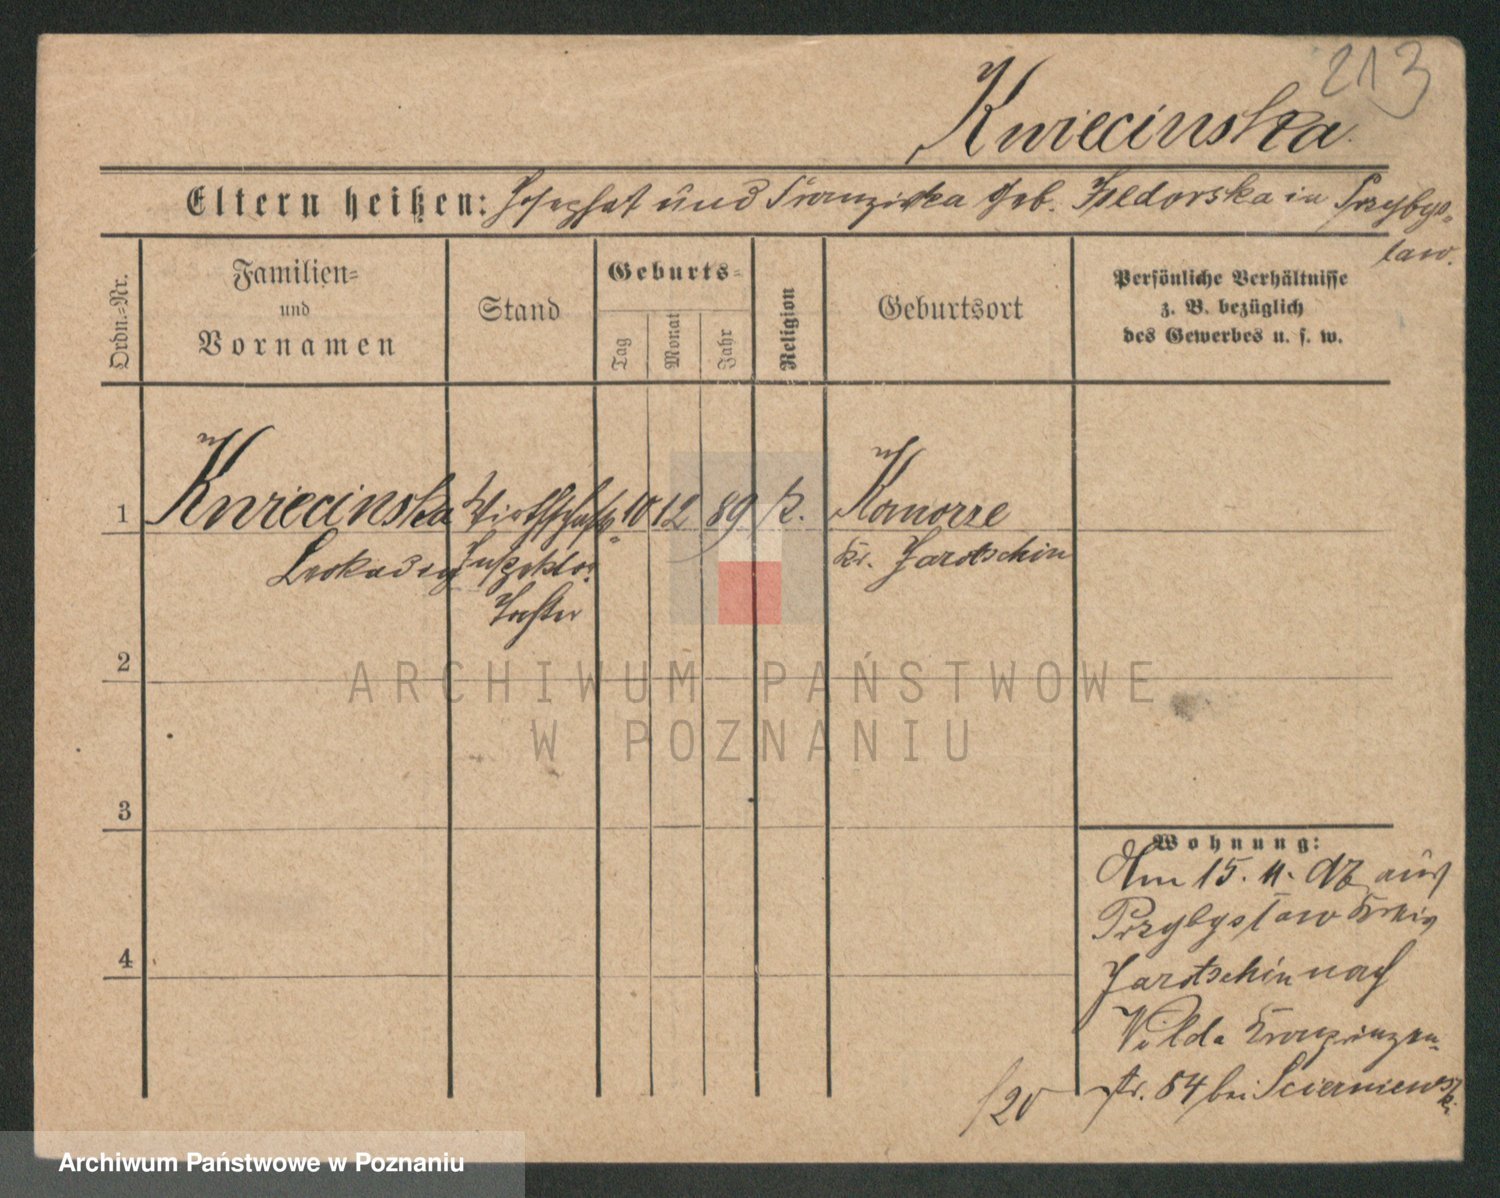 213
Kwiecinska
Eltern heißen: Josephat und Franziska geb. Feldorska in Przybys-
law.
Ordn.-Nr.
Familien-
und
Vornamen
Stand
Geburts-
Tag
Monat
Jahr
Religion
Geburtsort
Persönliche Verhältnisse
z. B. bezüglich
des Gewerbes u. s. w.
1 Kwiecinska Wirthschafts- 10 12 89 k. Komorze
Leokadia Inspektor Kr. Jarotschin
Tochter
2
3
4
ARCHIWUM PAŃSTWOWE
W POZNANIU
Wohnung:
Am 15. 11. 07 aus
Przybyslaw Kreis
Jarotschin nach
Wilda Kronprinzen-
str. 84 bei Scierniews
ki
/20
Archiwum Państwowe w Poznaniu